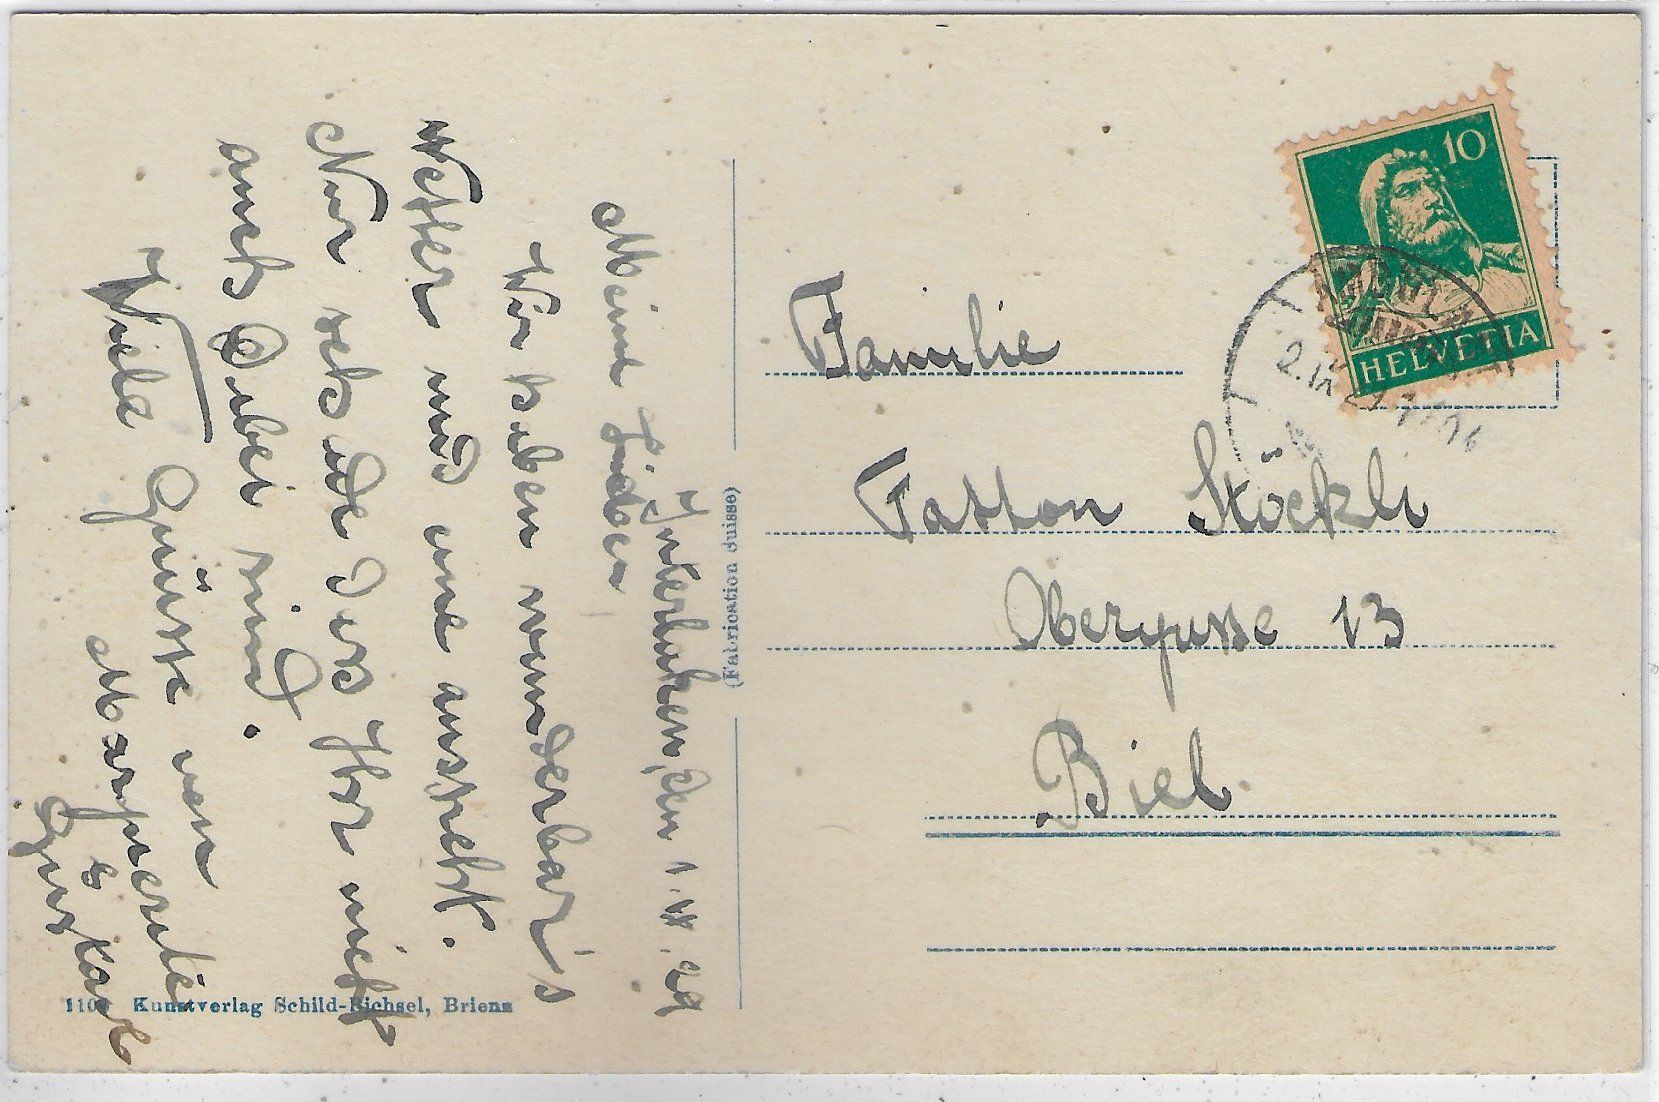 Interlaken, den 1. IX. 29
Meine Lieben
Wir haben wunderbar's
Wetter und eine Aussicht.
Nur schade dass Ihr nicht
auch dabei sind.
Viele Grüsse von
Marguerite
&
Gusta
Familie
Stöckli
Obergasse 13
Biel
10
HELVETIA
2.IX.29
(Fabrication Suisse)
Kunstverlag Schild-Bichsel, Brienz